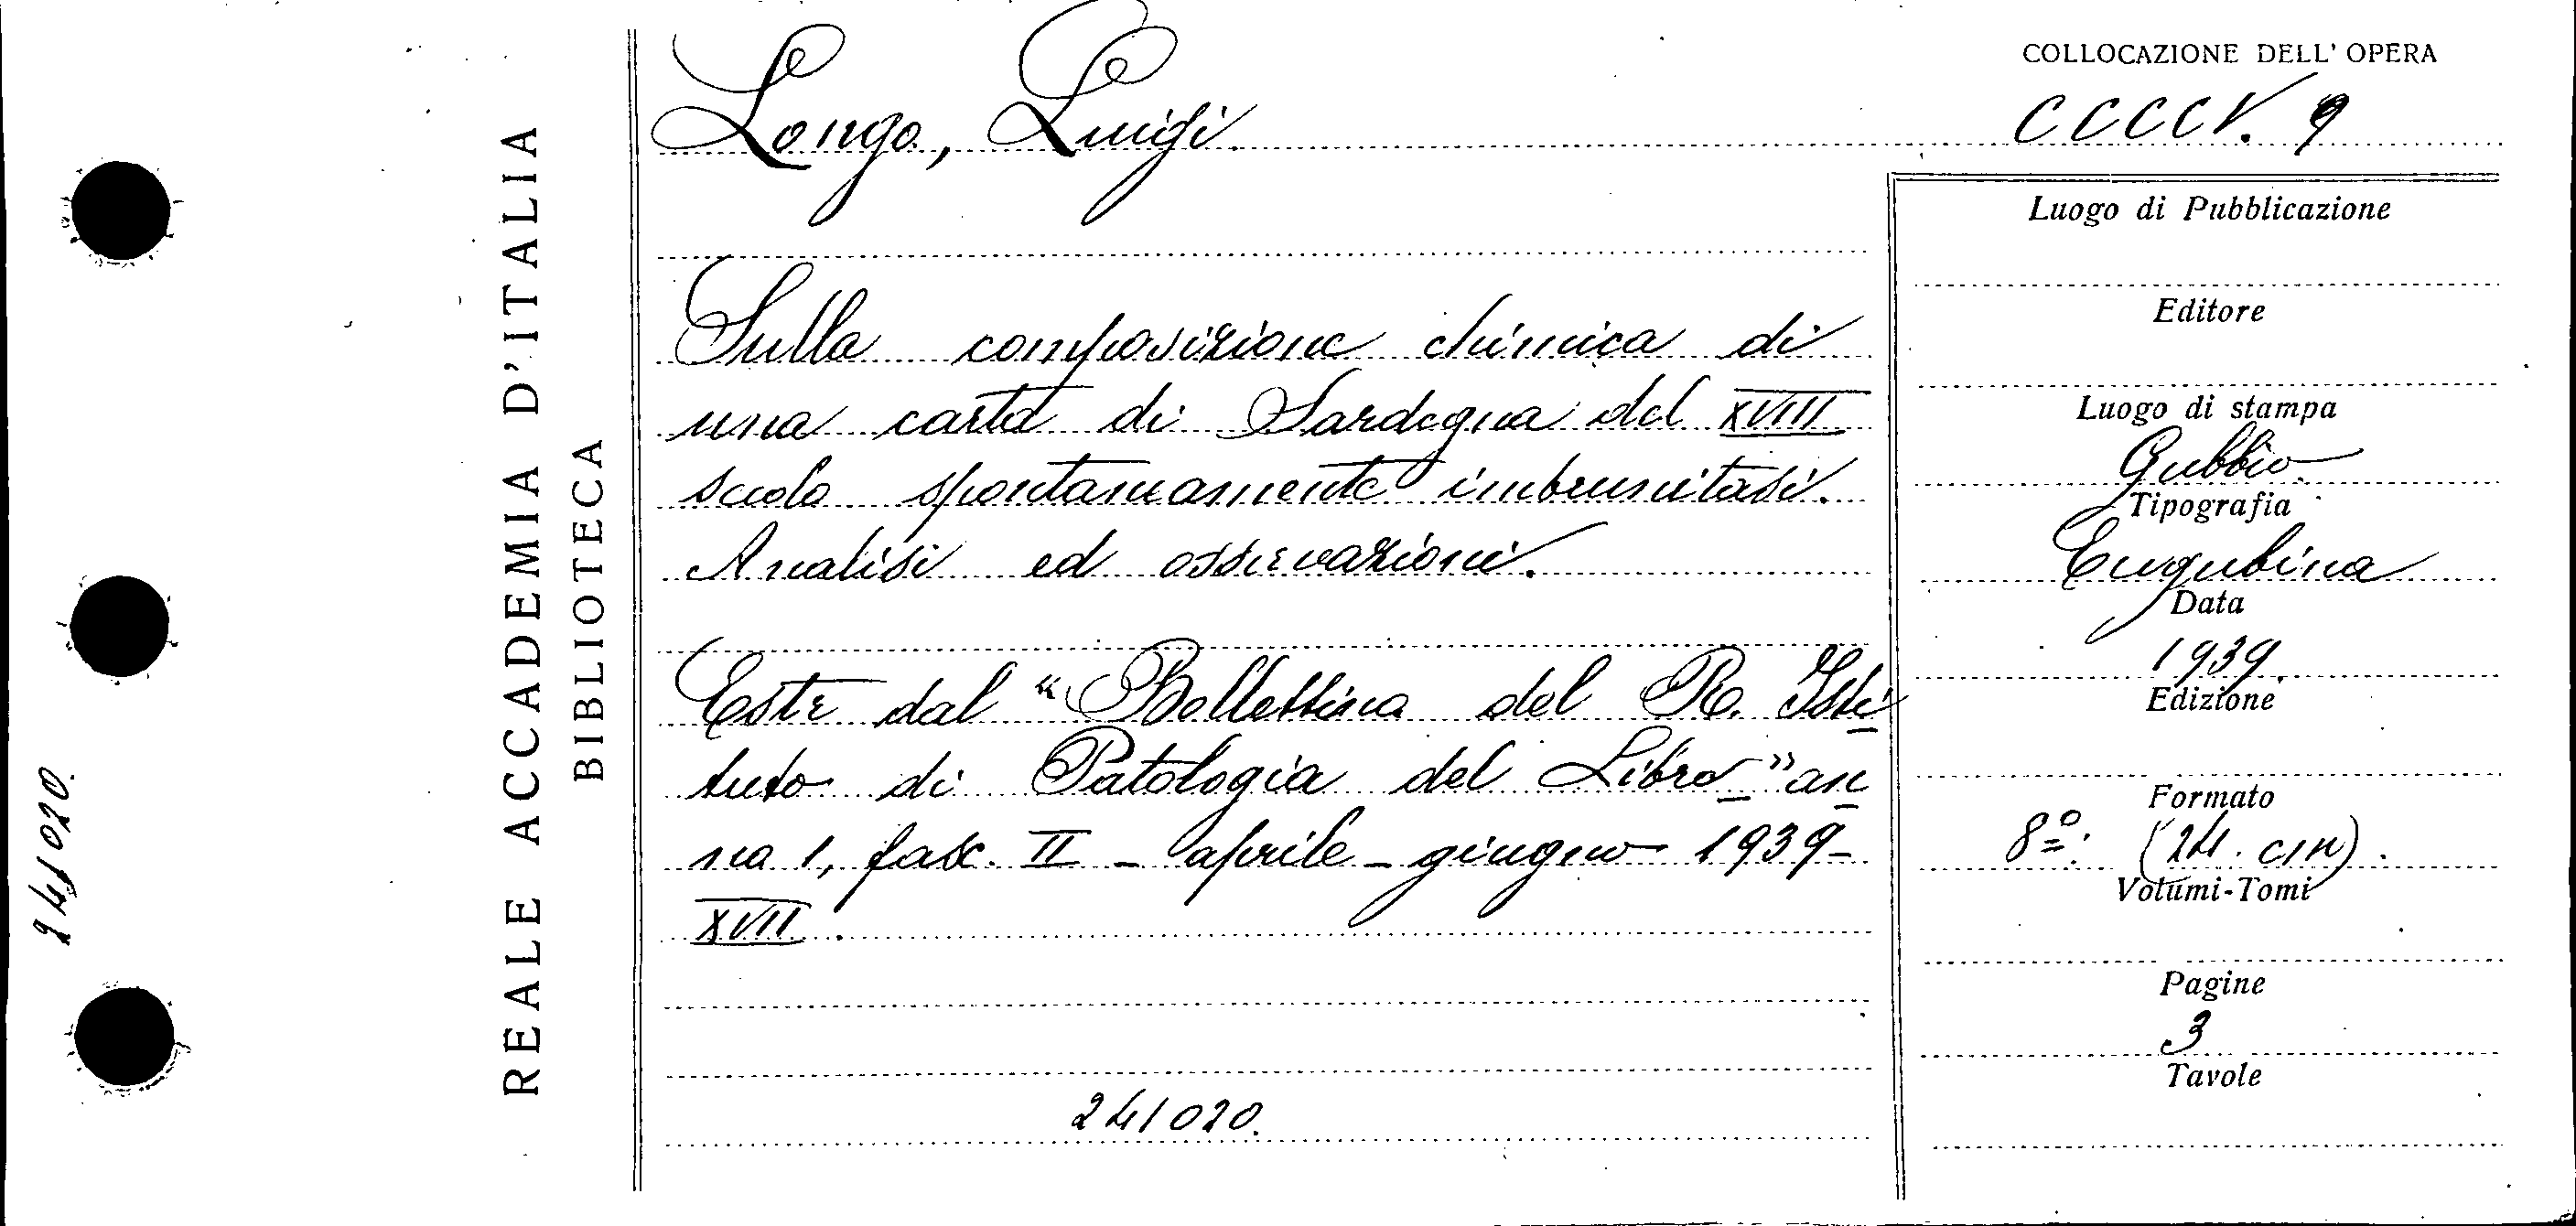 COLLOCAZIONE DELL' OPERA
Longo, Luigi.
CCCCV. 9
REALE ACCADEMIA D'ITALIA
BIBLIOTECA
241020.
Sulla composizione chimica di
una carta di Sardegna del XVIII
secolo spontaneamente imbrunitasi.
Analisi ed osservazioni.
Estr. dal "Bollettino del R. Isti
tuto di Patologia del Libro" an
no 1, fasc. II - aprile - giugno 1939-
XVII.
241020.
Luogo di Pubblicazione
Editore
Luogo di stampa
Gubbio
Tipografia
Eugubina
Data
1939.
Edizione
Formato
8º: (24. cm).
Volumi-Tomi
Pagine
3
Tavole